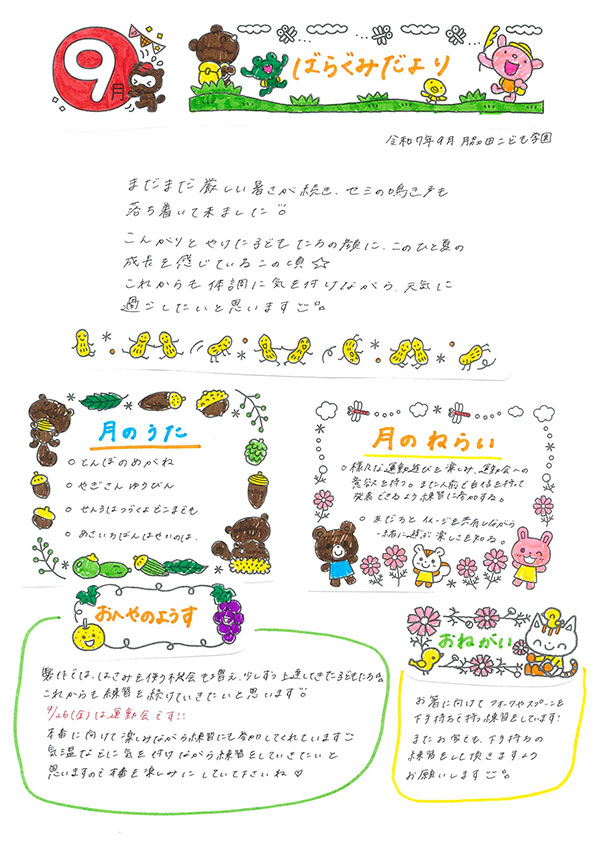 9月
ばらぐみだより
令和7年9月 脇田こども学園
まだまだ厳しい暑さが続き、セミの鳴き声も
落ち着いて来ました
こんがりとやけた子どもたちの顔に、このひと夏の
成長を感じているこの頃☆
これからも体調に気を付けながら、元気に
過ごしたいと思います
月のうた
○とんぼのめがね
○やぎさんゆうびん
○せんろはつづくよどこまでも
○あさいちばんはやいのは
月のねらい
○様々な運動遊びを楽しみ、運動会への
意欲を持つ。また人前で自信を持って
発表できるよう練習に参加する。
○友だちとイメージを共有しながら
一緒に遊ぶ楽しさを知る。
おへやのようす
製作では、はさみを使う機会も増え、少しずつ上達してきた子どもたち
これからも練習を続けていきたいと思います
9/26(金)は運動会です!!
本番に向けて楽しみながら練習にも参加してくれています
気温などに気を付けながら練習をしていきたいと
思いますので本番を楽しみにしていて下さいね♡
おねがい
お箸に向けてフォークやスプーンを
下手持ちで持つ練習をしています!
またお家でも、下手持ちの
練習をして頂きますよう
お願いします